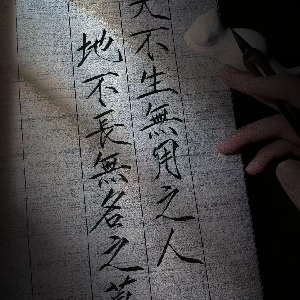 天不生無用之人
地不長無名之草